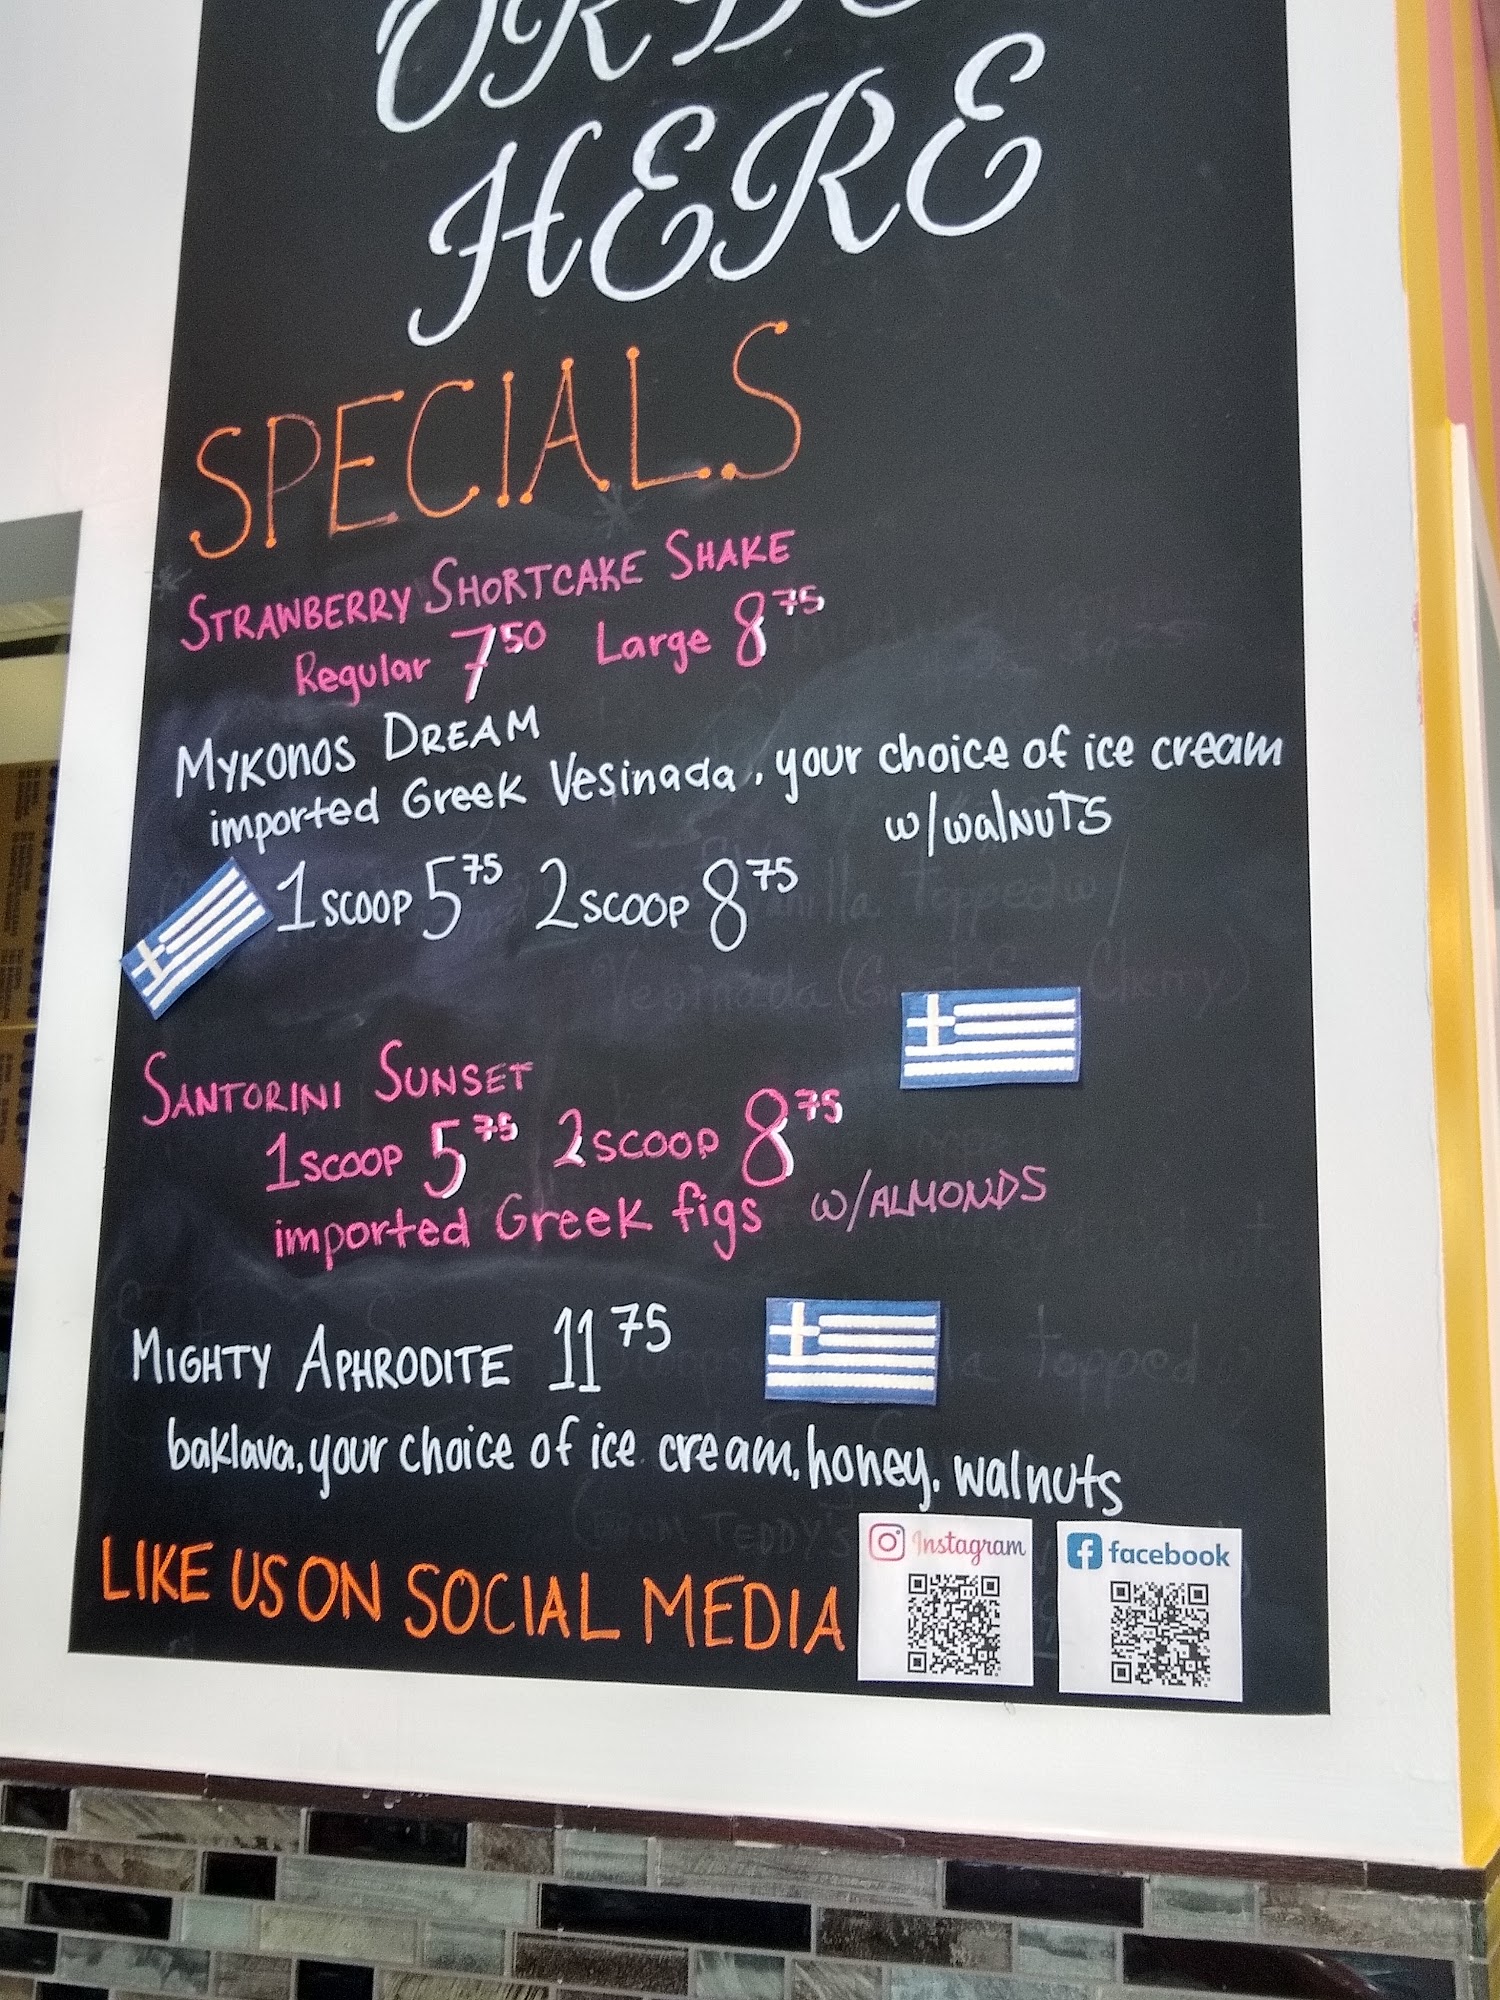 HERE
SPECIALS
STRAWBERRY SHORTCAKE SHAKE
Regular 7 50 Large 8 75
MYKONOS DREAM
imported Greek Vesinada, your choice of ice cream
w/walnuts
1 SCOOP 5 75 2 SCOOP 8 75
SANTORINI SUNSET
1 SCOOP 5 75 2 SCOOP 8 75
imported Greek figs w/ALMONDS
MIGHTY APHRODITE 11 75
baklava, your choice of ice cream, honey, walnuts
LIKE US ON SOCIAL MEDIA
Instagram
facebook